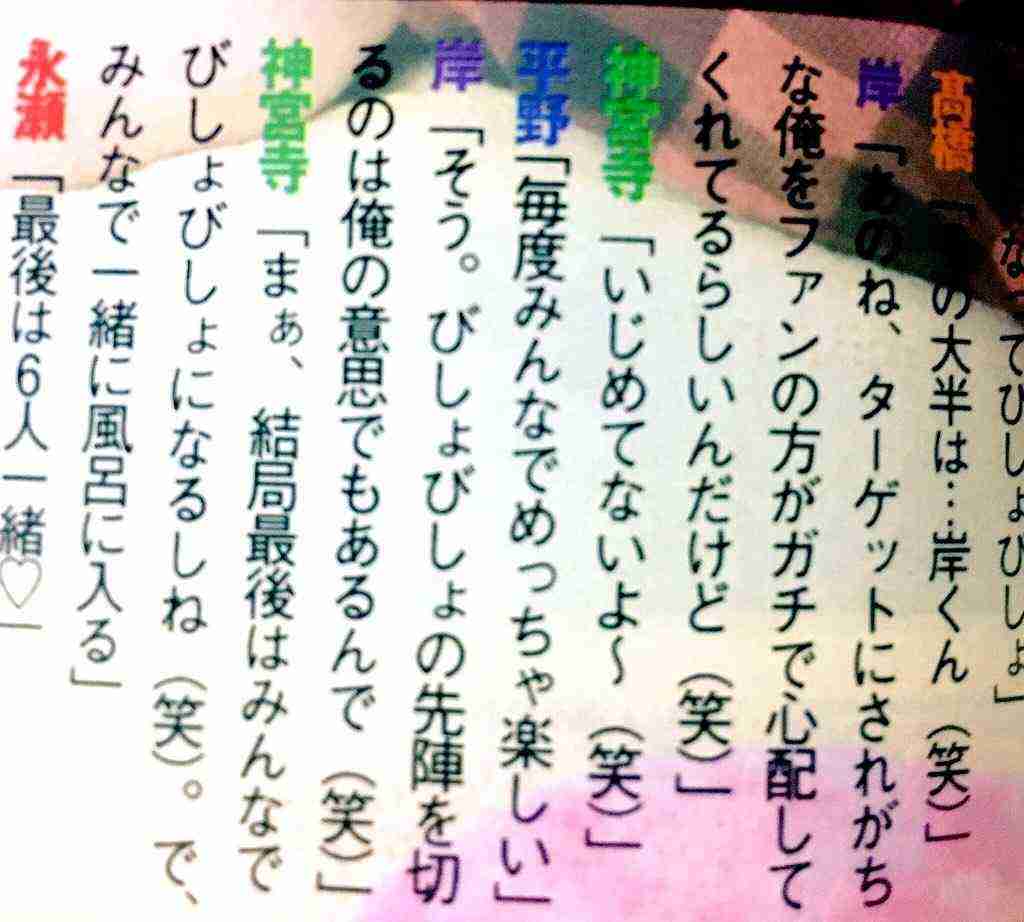 てびしょびしょ」
髙橋「その大半は…岸くん（笑）」
岸「あのね、ターゲットにされがち
な俺をファンの方がガチで心配して
くれてるらしいんだけど（笑）」
神宮寺「いじめてないよ〜（笑）」
平野「毎度みんなでめっちゃ楽しい」
岸「そう。びしょびしょの先陣を切
るのは俺の意思でもあるんで（笑）」
神宮寺「まぁ、結局最後はみんなで
びしょびしょになるしね（笑）。で、
みんなで一緒に風呂に入る」
永瀬「最後は6人一緒♡」